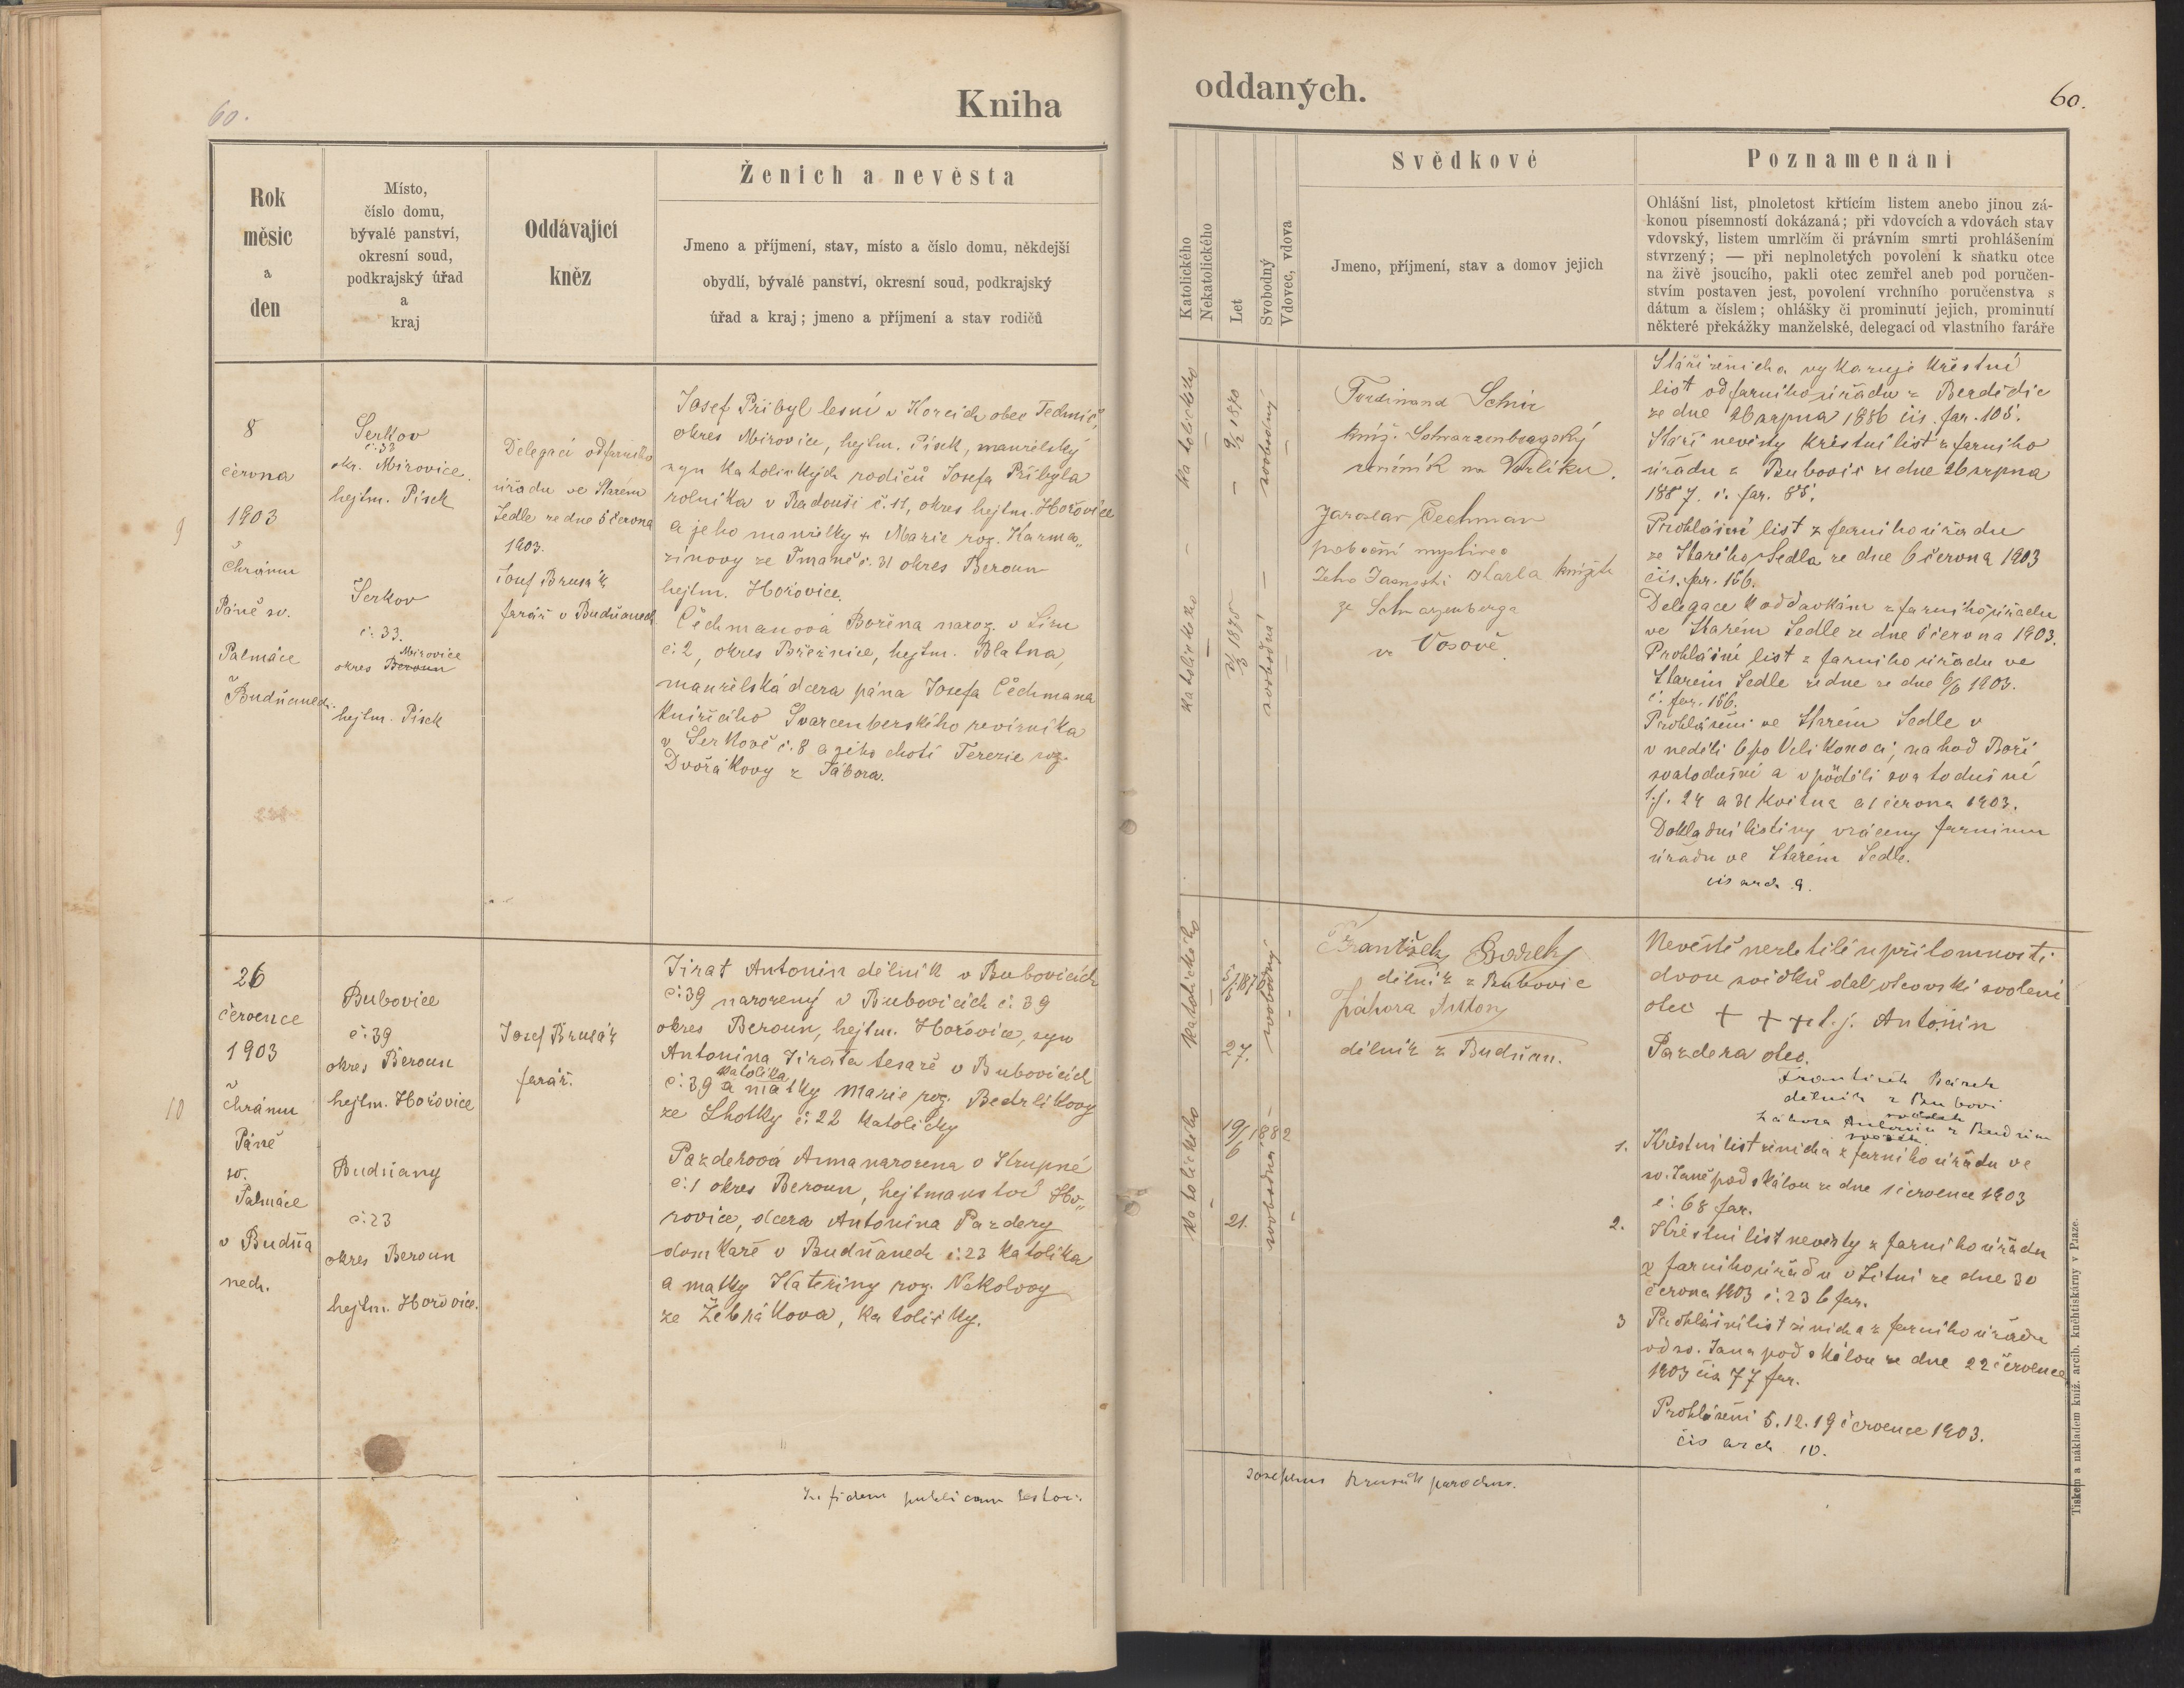 60.
Kniha
Rok
měsíc
a
den
Místo,
číslo domu,
bývalé panství,
okresní soud,
podkrajský úřad
a
kraj
Oddávající
kněz
Ženich a nevěsta
Jmeno a příjmení, stav, místo a číslo domu, někdejší
obydlí, bývalé panství, okresní soud, podkrajský
úřad a kraj; jmeno a příjmení a stav rodičů
9
8
června
1903
Chrámu
Páně sv.
Palmáce
v Budňanech.
Serkov
č. 33
okr. Mirovice.
hejtm. Písek
Serkov
č. 33.
Mirovice
okres Beroun
hejtm. Písek
Delegací od farního
úřadu ve Starém
Sedle ze dne 5 června
1903.
Josef Brusák
farář v Budňanech
Josef Přibyl lesní v Horcích obec
okres Mirovice, hejtm. Písek, manželský
syn katolických rodičů Josefa Přibyla
rolníka v Radouši č. 11, okres hejtm. Hořovice
a jeho manželky Marie roz. Karma„
zínovy ze Tmaně č. 31 okres Beroun
hejtm. Hořovice.
Čechmanová Božena naroz. v
č. 2, okres Březnice, hejtm. Blatna,
manželská dcera pána Josefa Čechmana
knížecího Švarcenberského revírníka
v Serkově č. 8 a jeho choti Terezie roz.
Dvořákovy z Tábora.
10
26
července
1903
chrámu
Páně
sv.
Palmáce
v Budňa
nech.
Bubovice
č. 39
okres Beroun
hejtm. Hořovice
Budňany
č. 23
okres Beroun
hejtm. Hořovice.
Josef Brusák
farář.
Jirat Antonín dělník v Bubovicích
č. 39 narozený v Bubovicích č. 39
okres Beroun, hejtm. Hořovice, syn
Antonína Jirata tesaře v Bubovicích
katolíka
č. 39 a matky Marie roz. Bedrlíkovy
ze Lhotky č. 22 katoličky
Pazderová Anna narozena v Krupné
č. 1 okres Beroun, hejtmanství Ho„
řovice, dcera Antonína Pazdery
domkaře v Budňanech č. 23 katolíka
a matky Kateřiny roz. Nekolovy
ze Žebrákova, katoličky.
In fidem publicam testor:
oddaných.
60.
Katolického
Nekatolického
Let
Svobodný
Vdovec, vdova
Svědkové
Jmeno, příjmení, stav a domov jejich
Poznamenání
Ohlášní list, plnoletost křtícím listem anebo jinou zá-
konou písemností dokázaná; při vdovcích a vdovách stav
vdovský, listem umrlčím či právním smrti prohlášením
stvrzený; — při neplnoletých povolení k sňatku otce
na živě jsoucího, pakli otec zemřel aneb pod poručen-
stvím postaven jest, povolení vrchního poručenstva s
dátum a číslem; ohlášky či prominutí jejich, prominutí
některé překážky manželské, delegací od vlastního faráře
katolického
9/2 1870
svobodný
katolického
1875
svobodná
Ferdinand
kníž. Schwarzenbergský
revírník na Vorlíku.
Jaroslav Čechman
poboční myslivec
Jeho Jasnosti Karla knížete
ze Schwarzenberga
ve Vosově.
Stáří ženicha vykazuje křestní
list od farního úřadu z Berdičic
ze dne 26 srpna 1886 čís. far. 105.
Stáří nevěsty křestní list z farního
úřadu z Bubovic ze dne 26 srpna
1887. č. far. 85.
Prohlášní list z farního úřadu
ze Starého Sedla ze dne 6 června 1903
čís. far. 156.
Delegace k oddavkám z farního úřadu
ve Starém Sedle ze dne 5 června 1903.
Prohlášní list z farního úřadu ve
Starém Sedle ze dne ze dne 6/6 1903.
č. far. 156.
Prohlášení ve Starém Sedle v
v neděli 6 po Velikonoci, na hod Boží
svatodušní a v pondělí svatodušní
t. j. 24 a 31 května a 1 června 1903.
Dokladní listiny vráceny farnímu
úřadu ve Starém Sedle.
čís arch. 9.
katolického
27.
svobodný
katolického
19/6 1882
21.
svobodná
František
dělník z Bubovic
Záhora Anton
dělník z Budňan.
Nevěstě nezletilé u přítomnosti
dvou svědků dal otcovské svolení
otec + + + t. j. Antonín
Pazdera otec.
František
dělník z Bubovi
svědek
Záhora Antonín z Budňan
svědek.
1. Křestní list ženicha z farního úřadu ve
sv. Janě pod skálou ze dne 1 července 1903
č. 68 far.
2. Křestní list nevěsty z farního úřadu
z farního úřadu v Litni ze dne 30
června 1903 č. 236 far.
3 Prohlášní list ženicha z farního úřadu
od sv. Jana pod skálou ze dne 22 července
1903 čís 77 far.
Prohlášení 5. 12. 19 července 1903.
čís arch 10.
Josephus Brusák parochus.
Tiskem a nákladem kníž. arcib. knihtiskárny v Praze.